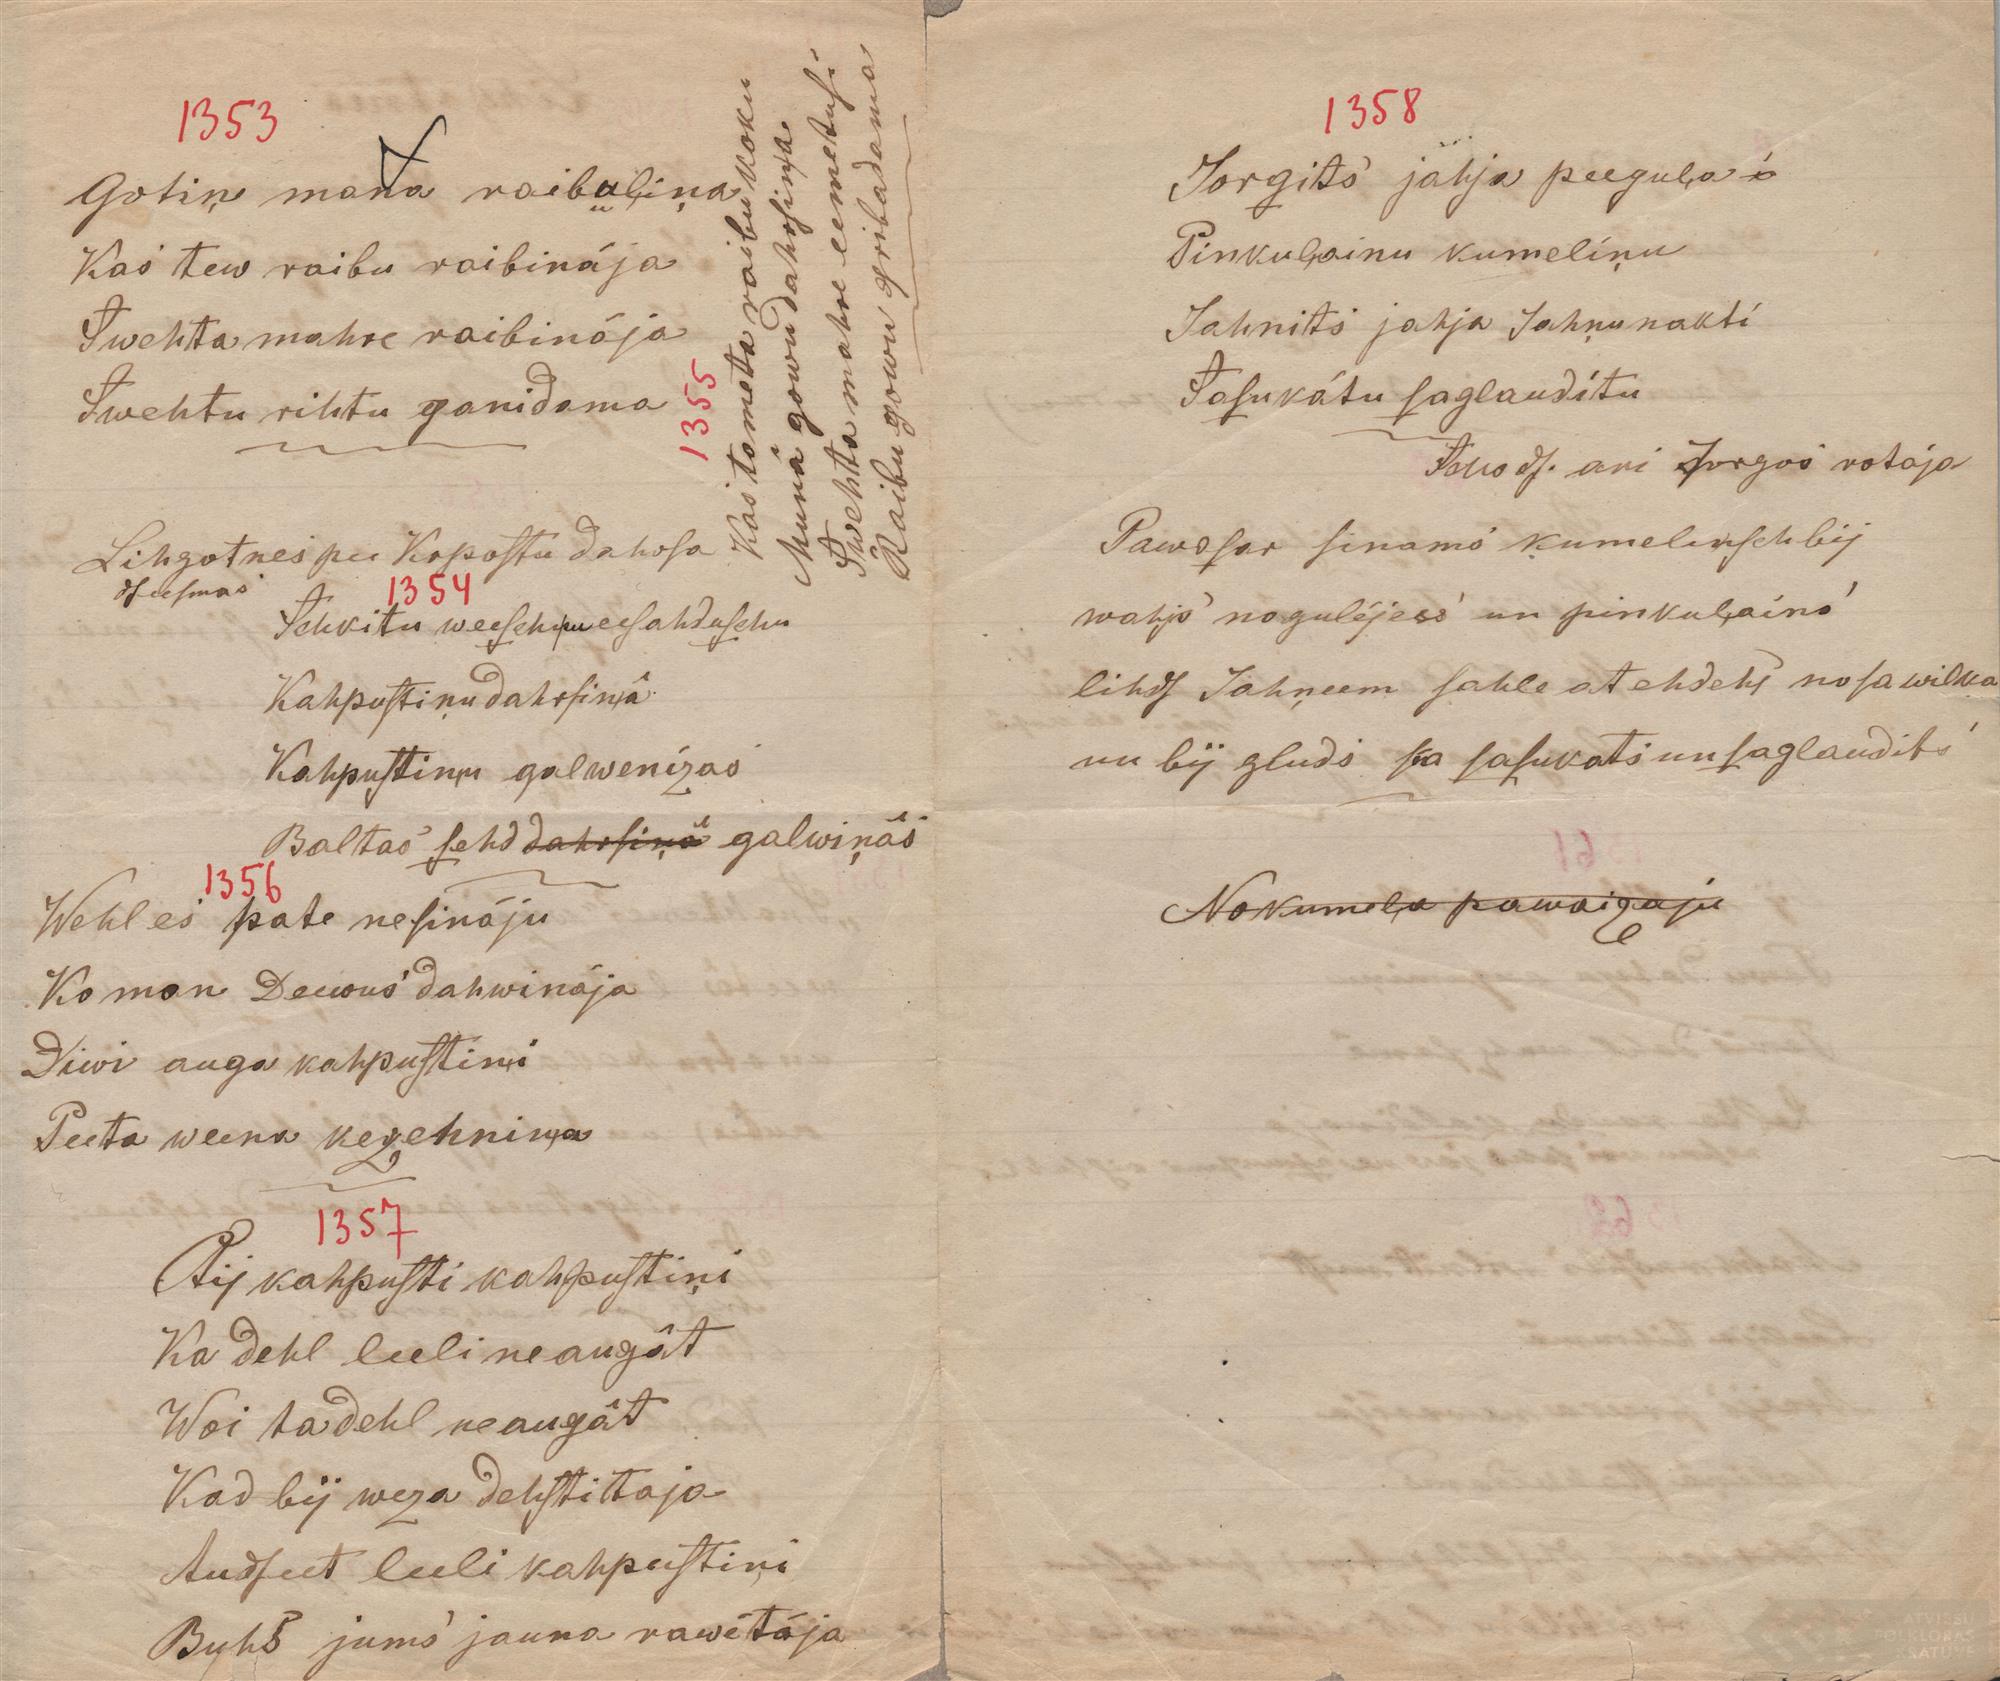 1353
Gotiņ mana raibuliņa
Kas tew raibu raibinája
Swehta mahre raibinája
Swehtu rihtu ganidama
1355
Kas to meta raibu koku
Munā gowu dahrsiņa
Swehta mahre eemetusi
Raibu gowu gribadama
Lihgotnes pee Kopostu dahrsa
dſeesmas
1354
Schkitu weeschņu eesahduschu
Kahpuſtiņu dahrsiņâ
Kahpuſtiņu galwenizas
Baltas ſehd dahrsiņâ galwiņâs
1356
Wehl es pate neſináju
Ko man Deews dahwinája
Diwi auga kahpuſtiņi
Peeta weena kezehniņa
1357
Aij kahpuſti kahpuſtiņi
Ka dehl leeli neaugât
Woi ta dehl neaugât
Kad bij weza dehſtitaja
Audſeet leeli kahpuſtiņi
Buhs jums jauna rawétája
1358
Jorgits jahja peeguļa
Pinkuļainu kumeliņu
Jahnits jahja Jahņu nakti
Saſukátu ſaglaudítu
ari Jorgos rotája
Pawasar ſinams kumelinſch bij
wahjs nogulējees un pinkuļains
lihdſ Jahņeem ſahle atehdehs noſawilka
nu bij gluds ſaſukats un ſaglaudits
No kumeļa pawaizaju